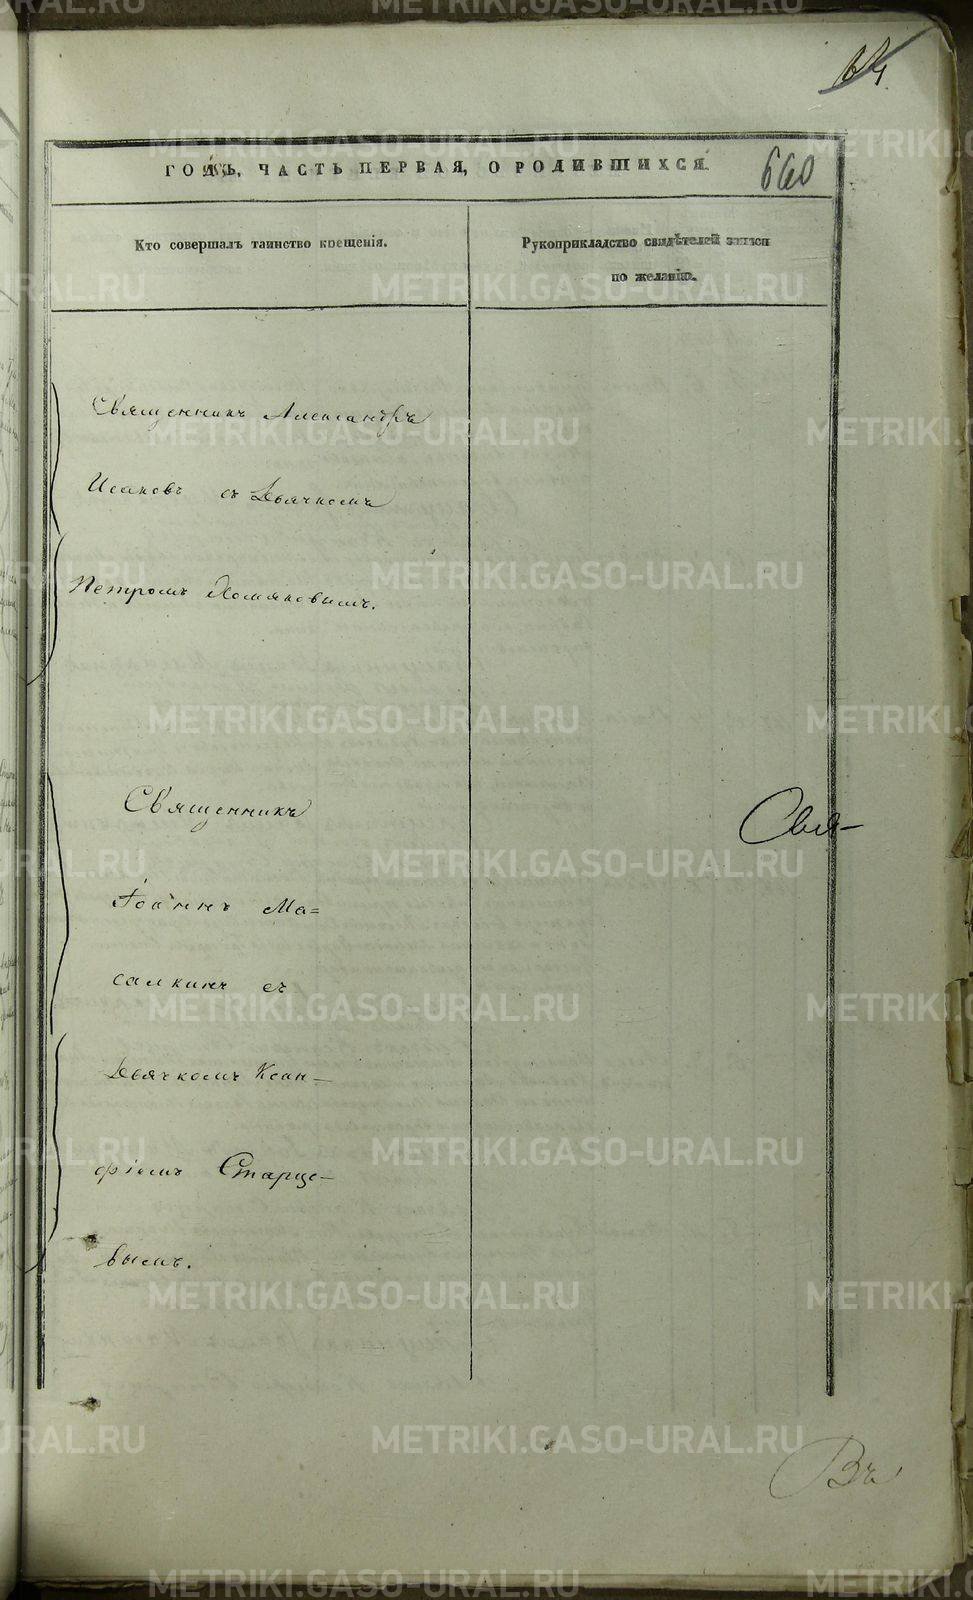 64.
ГОДЪ, ЧАСТЬ ПЕРВАЯ, О РОДИВШИХСЯ.
660
Кто совершалъ таинство крещенія.
Рукоприкладство свидѣтелей записи
по желанію.
Священникъ Александръ
Исаковъ съ Дьячкомъ
Петромъ Хомяковымъ.
Священникъ
Свя-
Іоаннъ Ма=
салкинъ съ
Дьячкомъ Ксан-
фіемъ Старце-
вымъ.
Въ
METRIKI.GASO-URAL.RU